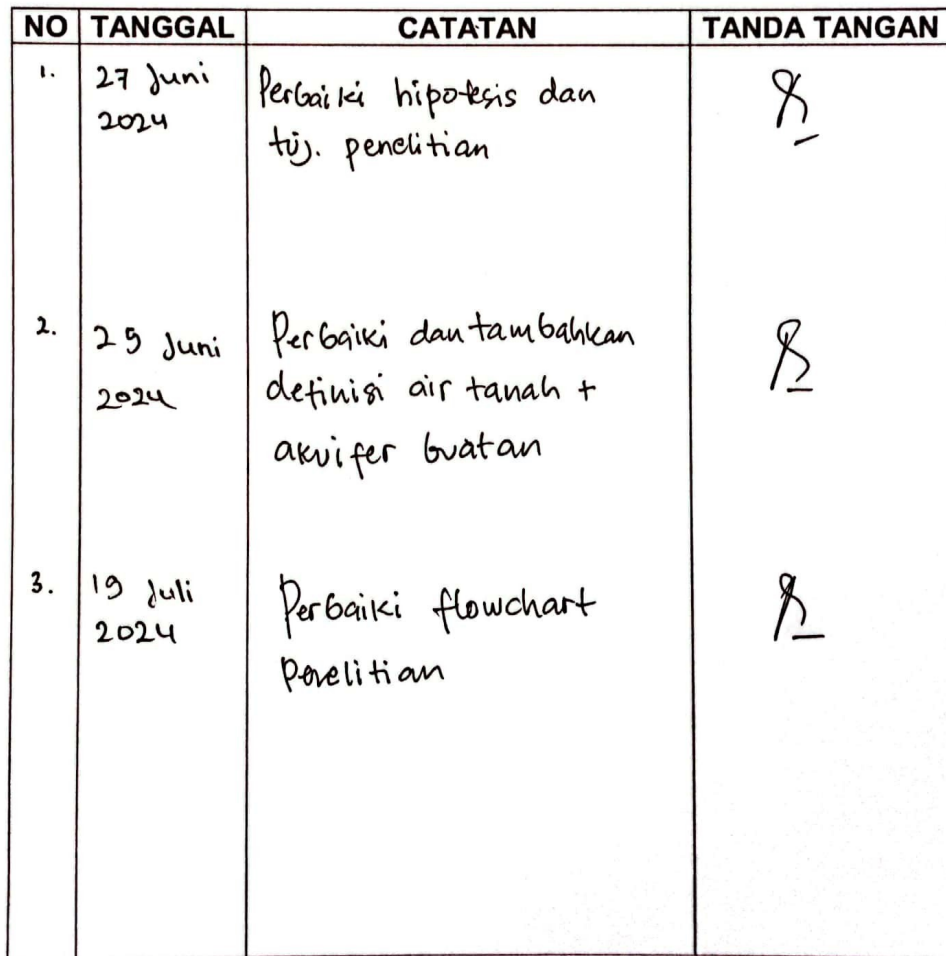 NO TANGGAL CATATAN TANDA TANGAN
1. 27 Juni Perbaiki hipotesis dan
2024 tuj. penelitian
2. 25 Juni Perbaiki dan tambahkan
2024 definisi air tanah +
akuifer buatan
3. 19 Juli Perbaiki flowchart
2024 penelitian